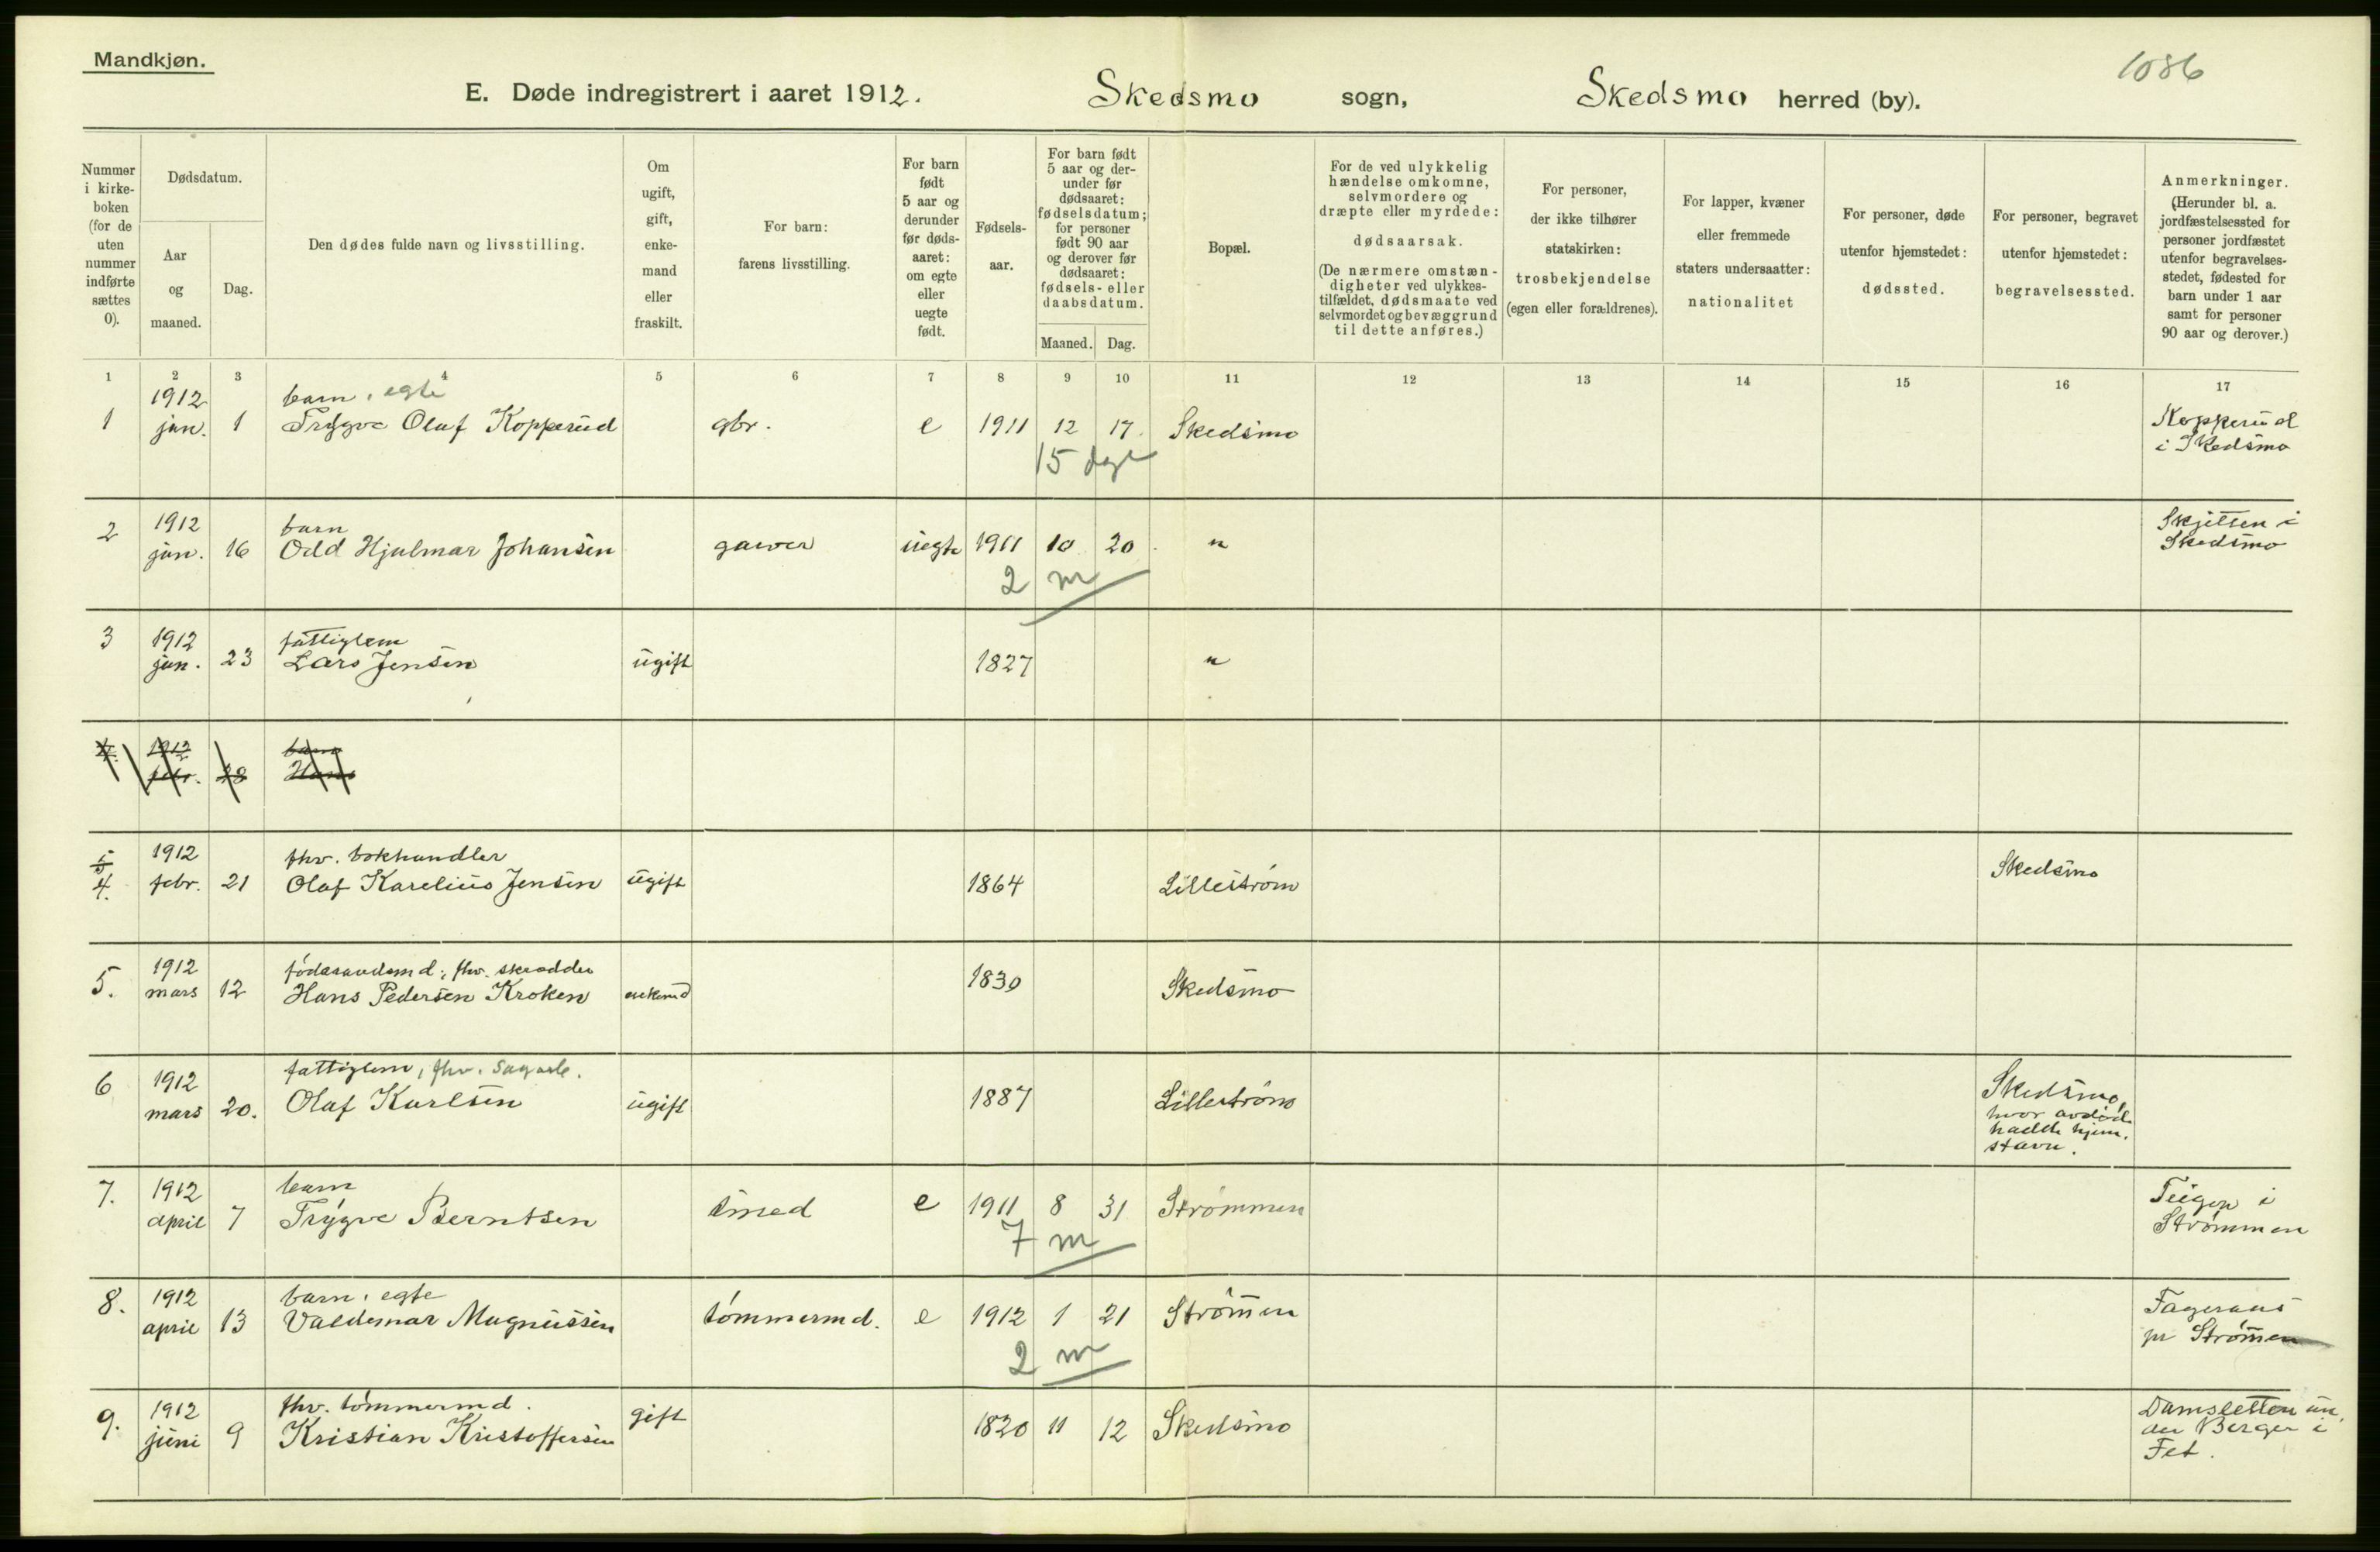 Mandkjøn.
1086
E. Døde indregistrert i aaret 1912. Skedsmo sogn, Skedsmo herred (by).
Nummer i kirke-boken (for de uten nummer indførte sættes 0).
Dødsdatum.
Aar og maaned.
Dag.
Den dødes fulde navn og livsstilling.
Om ugift, gift, enke-mand eller fraskilt.
For barn: farens livsstilling.
For barn født 5 aar og derunder før døds-aaret: om egte eller uegte født.
Fødsels-aar.
For barn født 5 aar og der-under før dødsaaret: fødselsdatum; for personer født 90 aar og derover før dødsaaret: fødsels- eller daabsdatum.
Maaned. Dag.
Bopæl.
For de ved ulykkelig hændelse omkomne, selvmordere og dræpte eller myrdede: dødsaarsak. (De nærmere omstæn-digheter ved ulykkes-tilfældet, dødsmaate ved selvmordet og bevæggrund til dette anføres.)
For personer, der ikke tilhører statskirken: trosbekjendelse (egen eller forældrenes).
For lapper, kvæner eller fremmede staters undersaatter: nationalitet
For personer, døde utenfor hjemstedet: dødssted.
For personer, begravet utenfor hjemstedet: begravelsessted.
Anmerkninger. (Herunder bl. a. jordfæstelsessted for personer jordfæstet utenfor begravelses-stedet, fødested for barn under 1 aar samt for personer 90 aar og derover.)
1 2 3 4 5 6 7 8 9 10 11 12 13 14 15 16 17
1912 barn, egte
1 jan. 1 Trygve Olaf Kopperud gbr. e 1911 12 17. Skedsmo Kopperud
i Skedsmo
15 dage
1912 barn Skjetten i
2 jan. 16 Odd Hjalmar Johansen garver uegte 1911 10 20 " Skedsmo
2 m
3 1912 fattiglem
jan. 23 Lars Jensen ugift 1827 "
4. 1912 barn
febr. 18 Hans
5 1912 fhv. bokhandler
4. febr. 21 Olaf Karelius Jensen ugift 1864 Lillestrøm Skedsmo
1912 føderaadsmd, fhv. skrædder
5. mars 12 Hans Pedersen Kroken enkemd 1830 Skedsmo
6 1912 fattiglem, fhv. sagarb.
mars 20. Olaf Karlsen ugift 1887 Lillestrøm Skedsmo,
hvor avdøde
hadde hjem.
stavn.
7. 1912 barn Teigen i
april 7 Trygve Berntsen smed e 1911 8 31 Strømmen Strømmen
7 m
8. 1912 barn, egte
april 13 Valdemar Magnussen tømmermd. e 1912 1 21 Strømen Fageraas
pr Strømen
2 m
1912 fhv. tømmermd.
9. juni 9 Kristian Kristoffersen gift 1820 11 12 Skedsmo Damsletten un,
der Berger i
Fet.